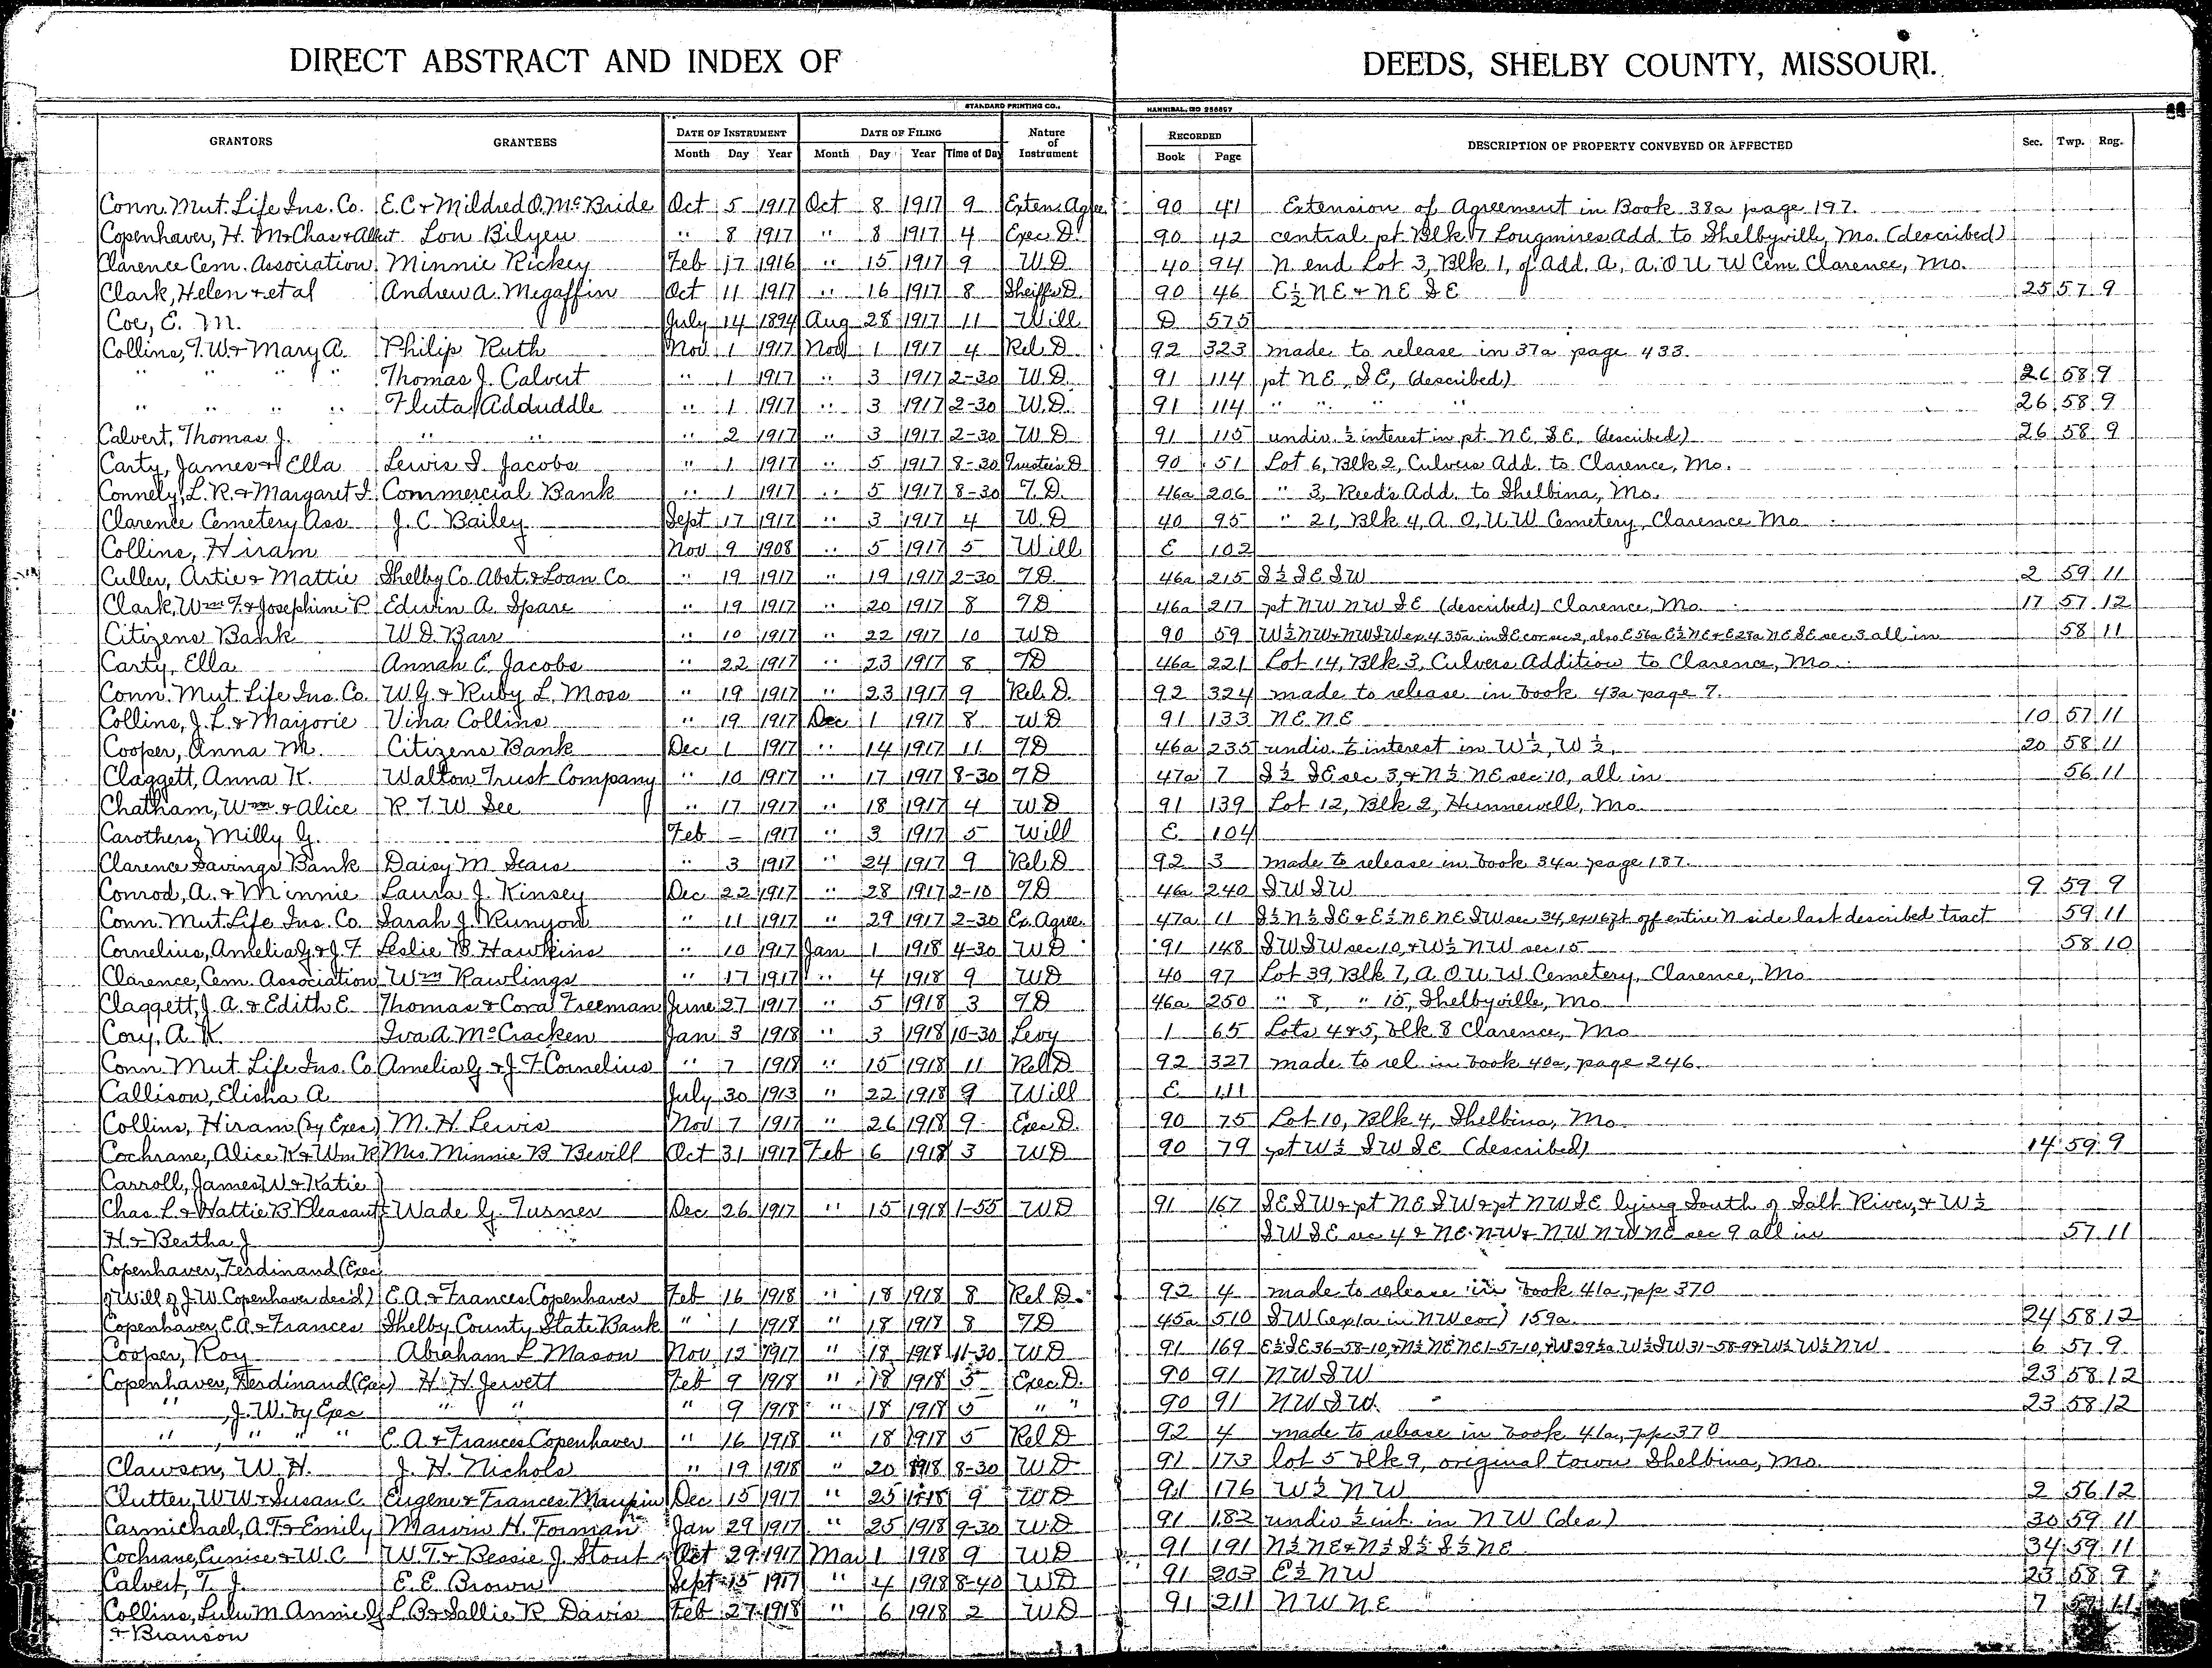 DIRECT ABSTRACT AND INDEX OF DEEDS, SHELBY COUNTY, MISSOURI.
STANDARD PRINTING CO., HANNIBAL, MO 256897
GRANTORS GRANTEES DATE OF INSTRUMENT DATE OF FILING Nature of Instrument RECORDED DESCRIPTION OF PROPERTY CONVEYED OR AFFECTED Sec. Twp. Rng.
Month Day Year Month Day Year Time of Day Book Page
Conn. Mut. Life Ins. Co. E.C. & Mildred O. McBride Oct 5 1917 Oct 8 1917 9 Exten. Agree. 90 41 Extension of Agreement in Book 38a page 197.
Copenhaver, H. M. Chas & Albert Lon Bilyeu " 8 1917 " 8 1917 4 Exec D. 90 42 central pt Blk 7 Lougmires Add. to Shelbyville, Mo. (described)
Clarence Cem. Association Minnie Rickey Feb 17 1916 " 15 1917 9 W.D. 40 94 N. end Lot 3, Blk 1, of Add. A, A.O.U.W Cem. Clarence, Mo.
Clark, Helen & et al Andrew A. Megaffin Oct 11 1917 " 16 1917 8 Sheiffs D. 90 46 E½ NE & NE SE 25 57 9
Coe, E. M. July 14 1894 Aug 28 1917 11 Will D 575
Collins, T.W. & Mary A. Philip Ruth Nov 1 1917 Nov 1 1917 4 Rel. D. 92 323 made to release in 37a page 433.
" " " " Thomas J. Calvert " 1 1917 " 3 1917 2-30 W.D. 91 114 pt NE, SE, (described) 26 58 9
" " " " Fluta Adduddle " 1 1917 " 3 1917 2-30 W.D. 91 114 " " " " 26 58 9
Calvert, Thomas J. " " " 2 1917 " 3 1917 2-30 W.D. 91 115 undiv. ½ interest in pt. NE, SE, (described) 26 58 9
Carty, James & Ella Lewis S. Jacobs " 1 1917 " 5 1917 8-30 Trustee's D 90 51 Lot 6, Blk 2, Culvers Add. to Clarence, Mo.
Connely, L.R. & Margaret I. Commercial Bank " 1 1917 " 5 1917 8-30 T.D. 46a 206 " 3, Reed's Add. to Shelbina, Mo.
Clarence Cemetery Ass. J. C. Bailey Sept 17 1917 " 3 1917 4 W.D 40 95 " 21, Blk 4, A.O.U.W Cemetery, Clarence Mo
Collins, Hiram Nov 9 1908 " 5 1917 5 Will E 102
Culler, Artie & Mattie Shelby Co. Abst. & Loan Co " 19 1917 " 19 1917 2-30 TD. 46a 215 S½ SE SW 2 59 11
Clark, Wm T. & Josephine P. Edwin A. Spare " 19 1917 " 20 1917 8 TD 46a 217 pt NW NW SE (described) Clarence, Mo. 17 57 12
Citizens Bank W D Barr " 10 1917 " 22 1917 10 WD 90 59 W½ NW & NW SW ex 4.35a in SE cor sec 2, also E 56a E½ NE & E 28a NE SE sec 3 all in 58 11
Carty, Ella Annah E. Jacobs " 22 1917 " 23 1917 8 TD 46a 221 Lot 14, Blk 3, Culvers Addition to Clarence, Mo.
Conn. Mut. Life Ins. Co. W.G. & Ruby L. Moss " 19 1917 " 23 1917 9 Rel. D. 92 324 made to release in book 43a page 7.
Collins, J.L. & Marjorie Vina Collins " 19 1917 Dec 1 1917 8 WD 91 133 NE. NE 10 57 11
Cooper, Anna M. Citizens Bank Dec 1 1917 " 14 1917 11 TD 46a 235 undiv. interest in W½, W½, 20 58 11
Claggett, Anna K. Walton Trust Company " 10 1917 " 17 1917 8-30 TD 47a 7 S½ SE sec 3, & N½ NE sec 10, all in 56 11
Chatham, Wm & Alice R. T. W. See " 17 1917 " 18 1917 4 W.D 91 139 Lot 12, Blk 2, Hunnewell, Mo
Carothers, Milly G. Feb – 1917 " 3 1917 5 Will E. 104
Clarence Savings Bank Daisy M. Sears " 3 1917 " 24 1917 9 Rel. D 92 3 made to release in book 34a page 187.
Conrod, A. & Minnie Laura J. Kinsey Dec 22 1917 " 28 1917 2-10 TD 46a 240 SW SW 9 59 9
Conn. Mut. Life Ins. Co. Sarah J. Runyon " 11 1917 " 29 1917 2-30 Ex. Agree. 47a 11 S½ N½ SE & E½ NE NE SW sec 34, ex 167ft off entire N side last described tract 59 11
Cornelius, Amelia G. & J. F. Leslie B. Hawkins " 10 1917 Jan 1 1918 4-30 WD 91 148 SW SW sec 10, & W½ NW sec 15 58 10
Clarence, Cem. Association Wm Rawlings " 17 1917 " 4 1918 9 WD 40 97 Lot 39, Blk 7, A.O.U.W Cemetery, Clarence, Mo
Claggett, J.A. & Edith E. Thomas & Cora Freeman June 27 1917 " 5 1918 3 TD 46a 250 " 8, " 15, Shelbyville, Mo
Cory, A. K. Iva A. McCracken Jan 3 1918 " 3 1918 10-30 Levy 1 65 Lots 4 & 5, blk 8 Clarence, Mo
Conn. Mut. Life Ins. Co Amelia G. & J. F. Cornelius " 7 1918 " 15 1918 11 Rel D 92 327 made to rel in book 40a, page 246.
Callison, Elisha A. July 30 1913 " 22 1918 9 Will E 111
Collins, Hiram (by Exec) M. H. Lewis Nov 7 1917 " 26 1918 9 Exec D. 90 75 Lot 10, Blk 4, Shelbina, Mo
Cochrane, Alice K. & Wm R Mrs Minnie B Bevill Oct 31 1917 Feb 6 1918 3 WD 90 79 pt W½ SW SE (described) 14 59 9
Carroll, James W. & Katie
Chas L. & Hattie B Pleasant Wade G. Turner Dec 26 1917 " 15 1918 1-55 WD 91 167 SE SW & pt NE SW & pt NW SE lying South of Salt River, & W½
H. & Bertha J SW SE sec 4 & NE. NW & NW NW NE sec 9 all in 57 11
Copenhaver, Ferdinand (Exec
of Will of J.W. Copenhaver dec'd) E.A. & Frances Copenhaver Feb 16 1918 " 18 1918 8 Rel D. 92 4 made to release in book 41a, pp 370
Copenhaver, E.A. & Frances Shelby County State Bank " 1 1918 " 18 1918 8 TD 45a 510 SW (ex 1a in NW cor) 159a 24 58 12
Cooper, Roy Abraham L Mason Nov 12 1917 " 18 1918 11-30 WD 91 169 E½ SE 36-58-10, & N½ NE NE 1-57-10, & W 29½a W½ SW 31-58-9 & W½ W½ NW 6 57 9
Copenhaver, Ferdinand (Exec) H. H. Jewett Feb 9 1918 " 18 1918 5 Exec. D. 90 91 NW SW 23 58 12
" , J. W. by Exec " " " 9 1918 " 18 1918 5 " " 90 91 NW SW. 23 58 12
" , " " " E. A. & Frances Copenhaver " 16 1918 " 18 1918 5 Rel D 92 4 made to release in book 41a, pp 370
Clawson, W. H. J. H. Nichols " 19 1918 " 20 1918 8-30 WD 91 173 lot 5 blk 9, original town Shelbina, Mo.
Clutter, W W & Susan C. Eugene & Frances Maupin Dec 15 1917 " 25 1918 9 WD 91 176 W½ NW 2 56 12
Carmichael, A. F. & Emily Marvin H. Forman Jan 29 1917 " 25 1918 9-30 WD 91 182 undiv ½ int. in NW (des) 30 59 11
Cochrane, Eunice & W.C. W.T. & Bessie J. Stout Oct 29 1917 Mar 1 1918 9 WD 91 191 N½ NE & N½ S½ S½ NE 34 59 11
Calvert, T. J. E. E. Brown Sept 15 1917 " 4 1918 8-40 WD 91 203 E½ NW 23 58 9
Collins, Lulu M. Annie G L. B. & Sallie R Davis Feb 27 1918 " 6 1918 2 WD 91 211 NW NE 7 57 11
& Branson